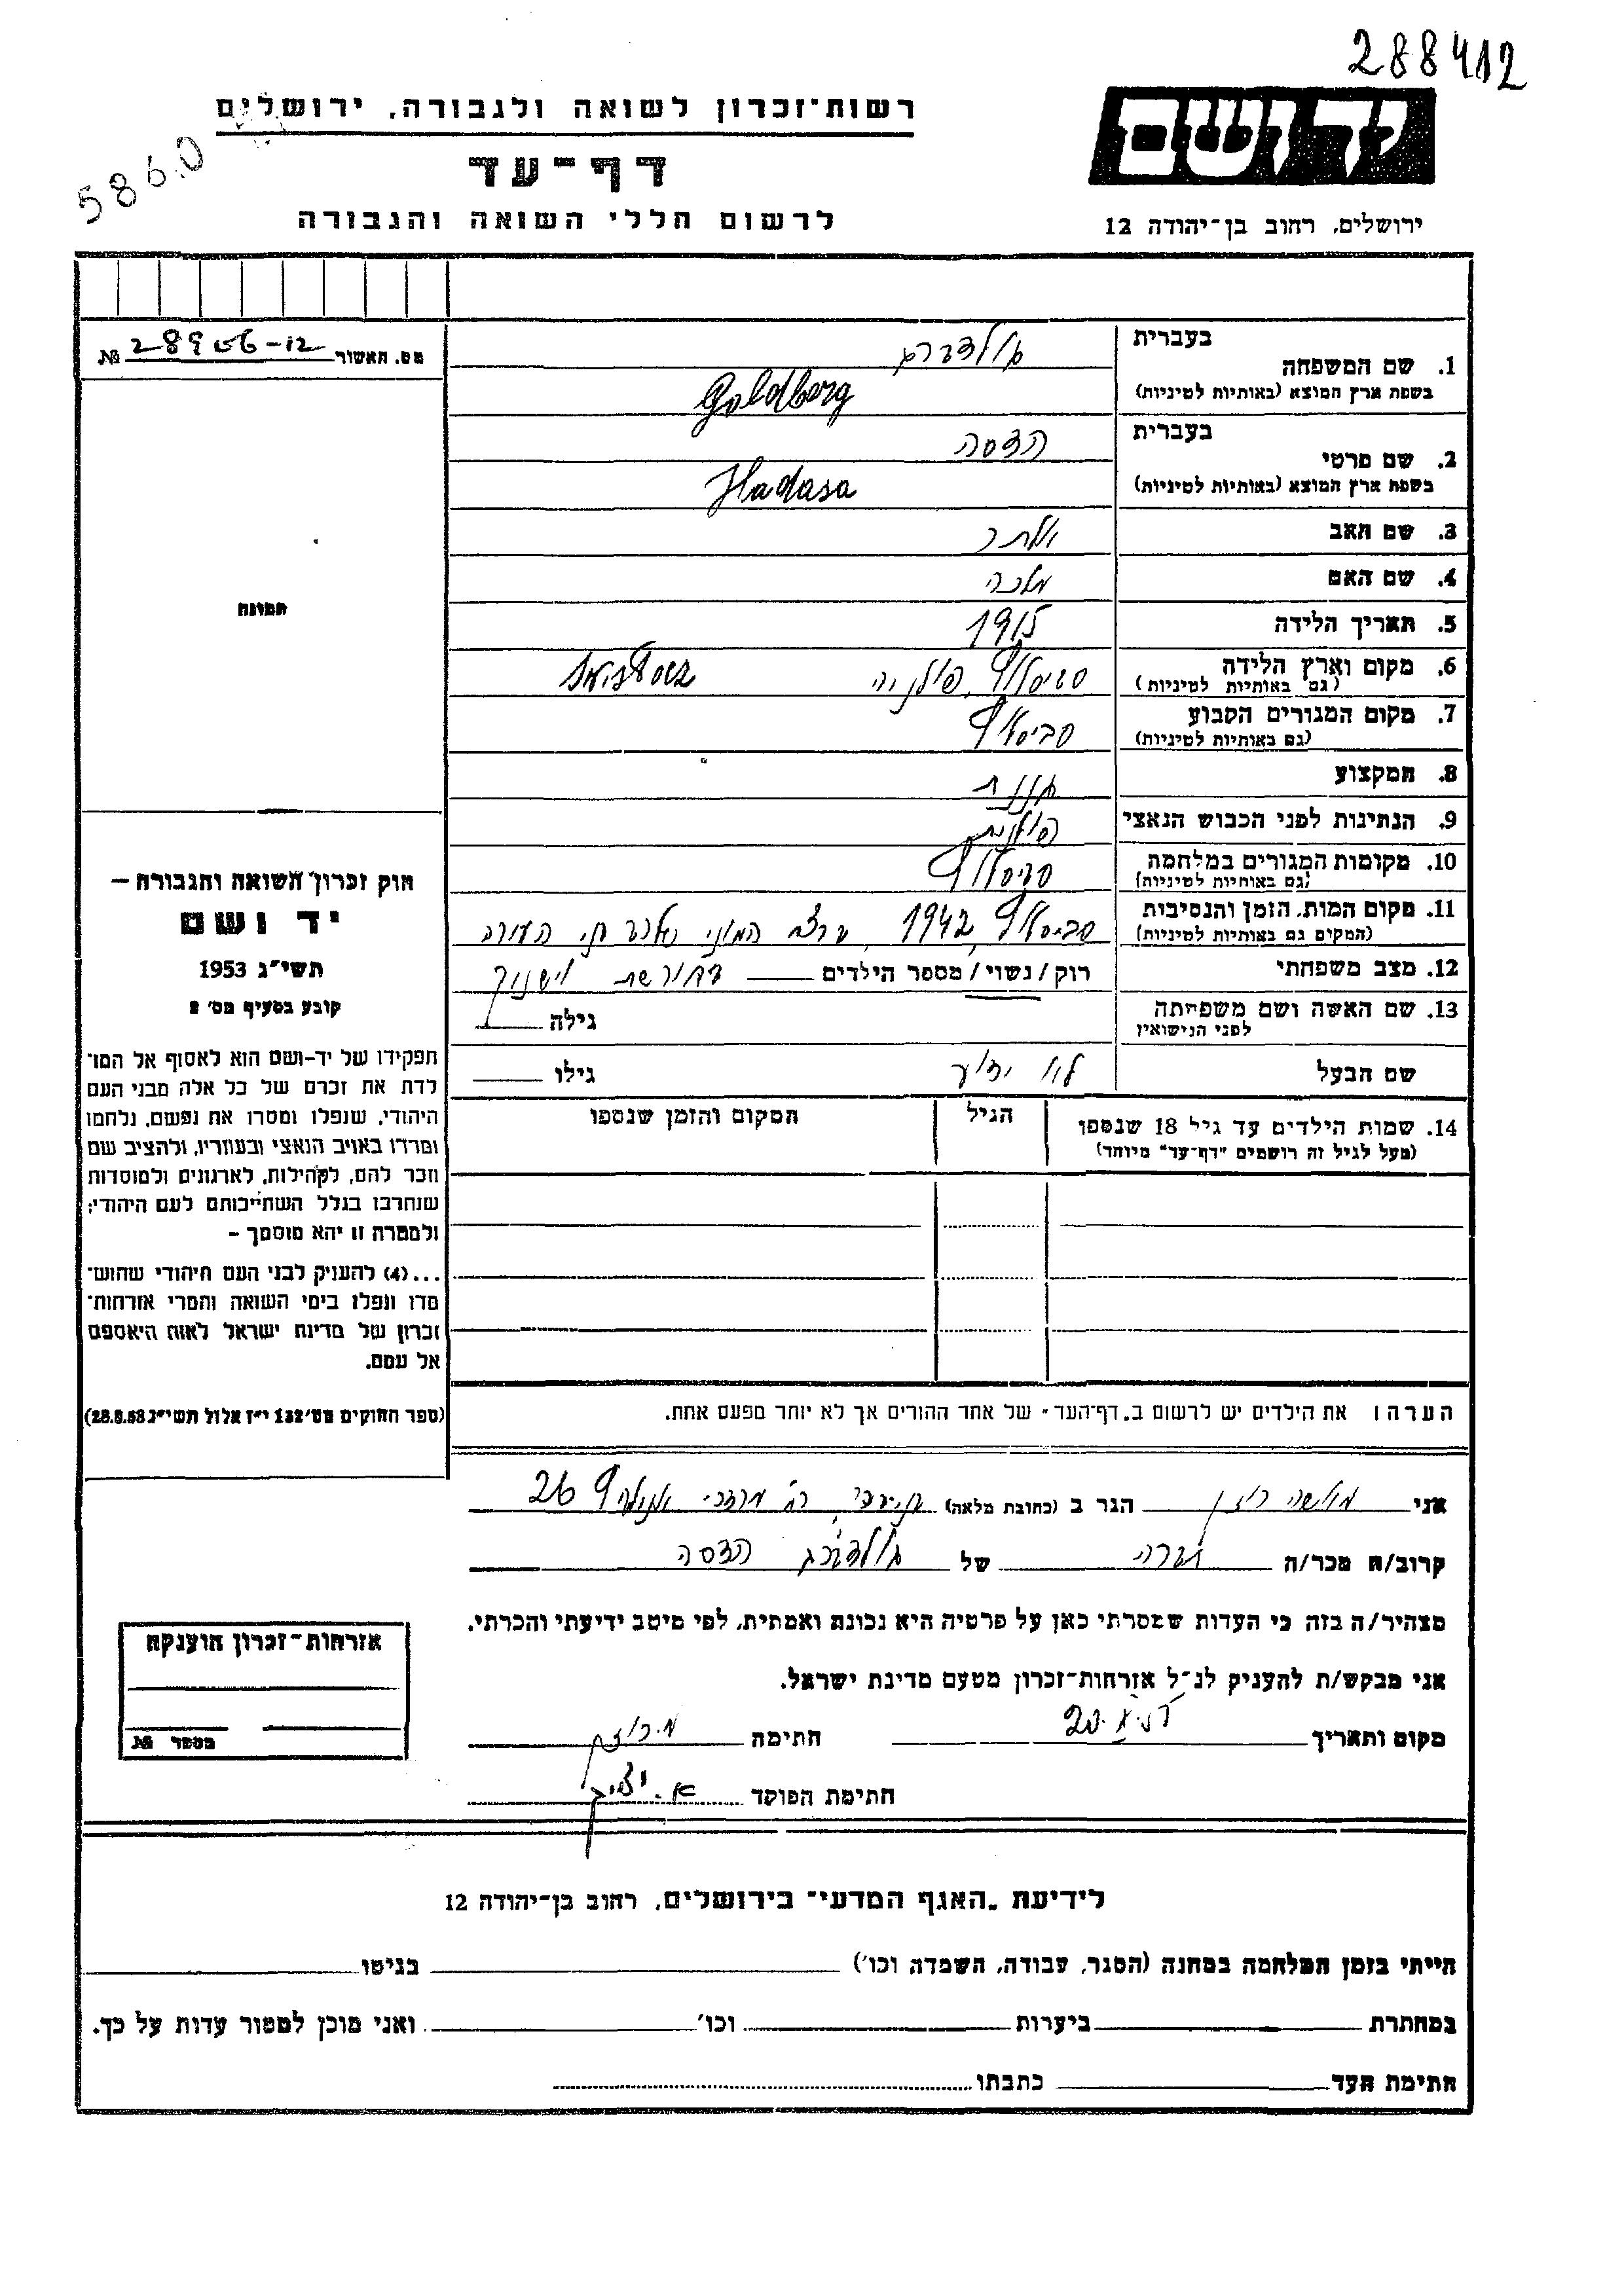 288412
5860
רשות־זכרון לשואה ולגבורה, ירושלים
ידושם
דף־עד
ירושלים, רחוב בן־יהודה 12
לרשום חללי השואה והגבורה
מס. האשור 12-289 №
בעברית
1. שם המשפחה גולדברג
בשפת ארץ המוצא (באותיות לטיניות) Goldberg
בעברית
2. שם פרטי הדסה
בשפת ארץ המוצא (באותיות לטיניות) Hadasa
3. שם האב
4. שם האם מלכה
תמונה
5. תאריך הלידה 1915
6. מקום וארץ הלידה פולניה
(גם באותיות לטיניות)
7. מקום המגורים הקבוע
(גם באותיות לטיניות)
8. המקצוע גננת
9. הנתינות לפני הכבוש הנאצי פולנית
10. מקומות המגורים במלחמה
(גם באותיות לטיניות)
11. מקום המות, הזמן והנסיבות 1942, המוני העירה
(המקום גם באותיות לטיניות)
12. מצב משפחתי רוק/נשוי/מספר הילדים
13. שם האשה ושם משפחתה גילה
לפני הנישואין
שם הבעל גילו
14. שמות הילדים עד גיל 18 שנספו הגיל המקום והזמן שנספו
(מעל לגיל זה רושמים "דף־עד" מיוחד)
חוק זכרון השואה והגבורה –
יד ושם
תשי"ג 1953
קובע בסעיף מס' 2
תפקידו של יד-ושם הוא לאסוף אל המו־
לדת את זכרם של כל אלה מבני העם
היהודי, שנפלו ומסרו את נפשם, נלחמו
ומרדו באויב הנאצי ובעוזריו, ולהציב שם
וזכר להם, לקהילות, לארגונים ולמוסדות
שנחרבו בגלל השתייכותם לעם היהודי;
ולמטרה זו יהא מוסמך –
...(4) להעניק לבני העם היהודי שהוש־
מדו ונפלו בימי השואה והמרי אזרחות־
זכרון של מדינת ישראל לאות היאספם
אל עמם.
(ספר החוקים מס' 132 י"ז אלול תשי"ג 28.8.53)
הערה: את הילדים יש לרשום ב"דף־העד" של אחד ההורים אך לא יותר מפעם אחת.
אני הגר ב (כתובת מלאה) 26
קרוב/ה מכר/ה חברה של גולדברג הדסה
מצהיר/ה בזה כי העדות שמסרתי כאן על פרטיה היא נכונה ואמתית, לפי מיטב ידיעתי והכרתי.
אני מבקש/ת להעניק לנ"ל אזרחות־זכרון מטעם מדינת ישראל.
מקום ותאריך חתימה
חתימת הפוקד
אזרחות־זכרון הוענקה
מספר №
לידיעת "האגף המדעי" בירושלים, רחוב בן־יהודה 12
הייתי בזמן המלחמה במחנה (הסגר, עבודה, השמדה וכו') בגיטו
במחתרת ביערות וכו' ואני מוכן למסור עדות על כך.
חתימת העד כתבתו